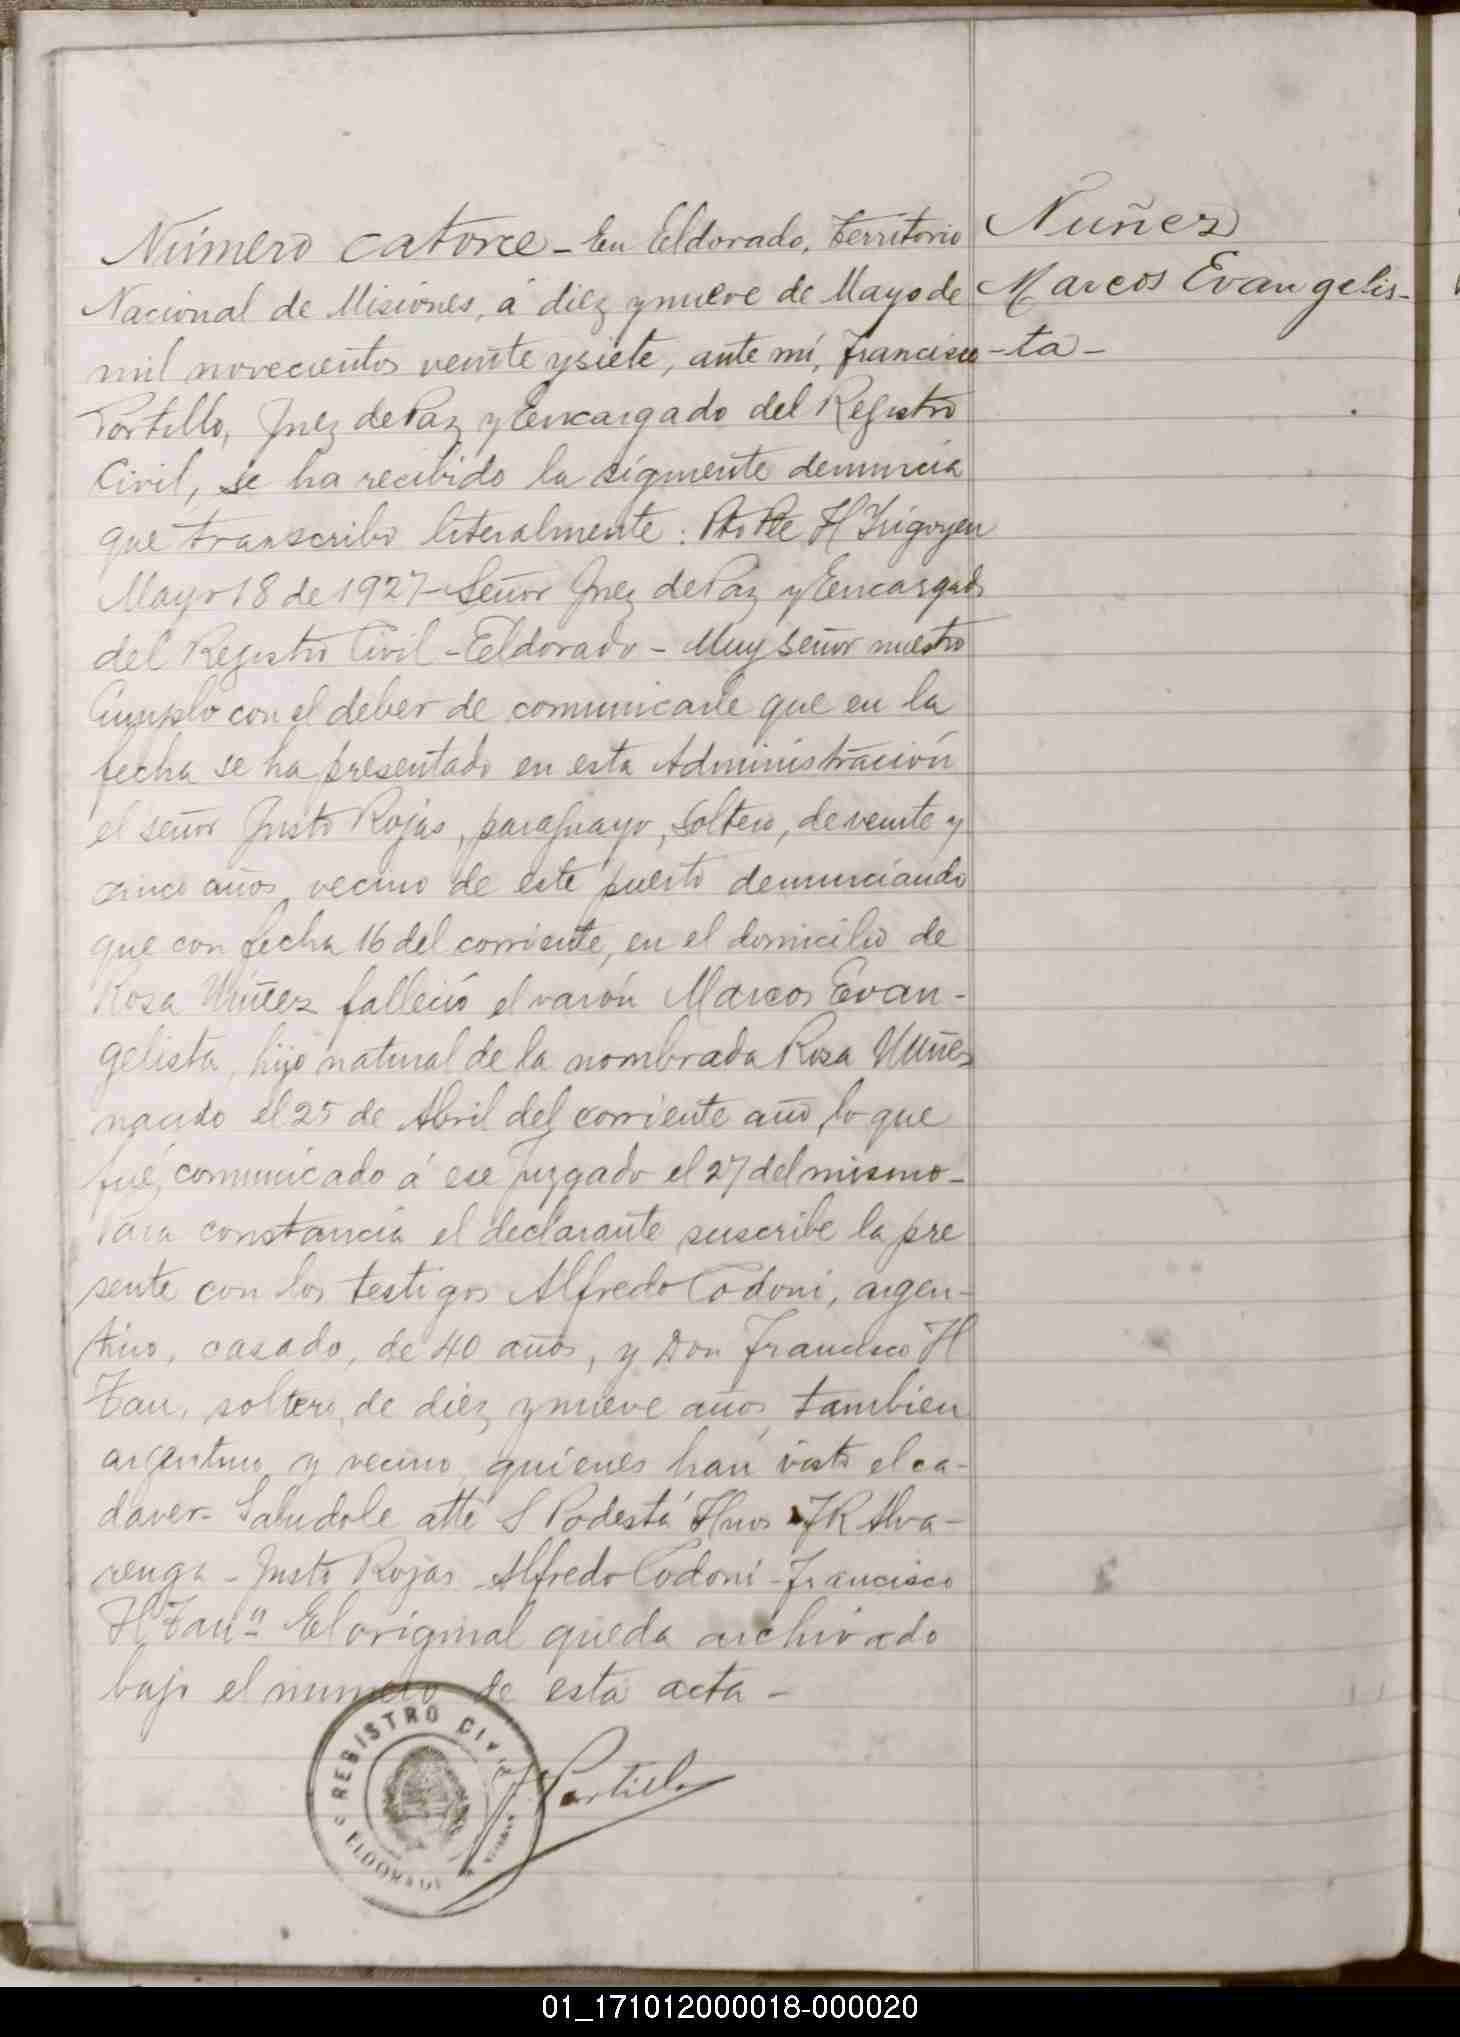 Número catorce - En Eldorado, territorio
Nacional de Misiones, á diez y nueve de Mayo de
mil novecientos veinte y siete, ante mí, Francisco
Portillo, Juez de Paz y Encargado del Registro
Civil, se ha recibido la siguiente denuncia
que transcribo literalmente: Pto Pte H Yrigoyen
Mayo 18 de 1927 - Señor Juez de Paz y Encargado
del Registro Civil - Eldorado - Muy señor nuestro
Cumplo con el deber de comunicarle que en la
fecha se ha presentado en esta Administración
el señor Justo Rojas, paraguayo, soltero, de veinte y
cinco años, vecino de este puerto denunciando
que con fecha 16 del corriente, en el domicilio de
Rosa Núñez falleció el varón Marcos Evan-
gelista, hijo natural de la nombrada Rosa Núñez
nacido el 25 de Abril del corriente año, lo que
fué comunicado á ese Juzgado el 27 del mismo -
Para constancia el declarante suscribe la pre
sente con los testigos Alfredo Codoni, argen-
tino, casado, de 40 años, y Don Francisco H
Zau, soltero, de diez y nueve años, tambien
argentino y vecino, quienes han visto el ca-
daver - Saludole atte S Podestá Hnos JR Alva-
renga - Justo Rojas - Alfredo Codoni - Francisco
H Zau" El original queda archivado
bajo el numero de esta acta -
Nuñez
Marcos Evangelis-
-ta-
REGISTRO CIVIL
ELDORADO
F Portillo
01_171012000018-000020